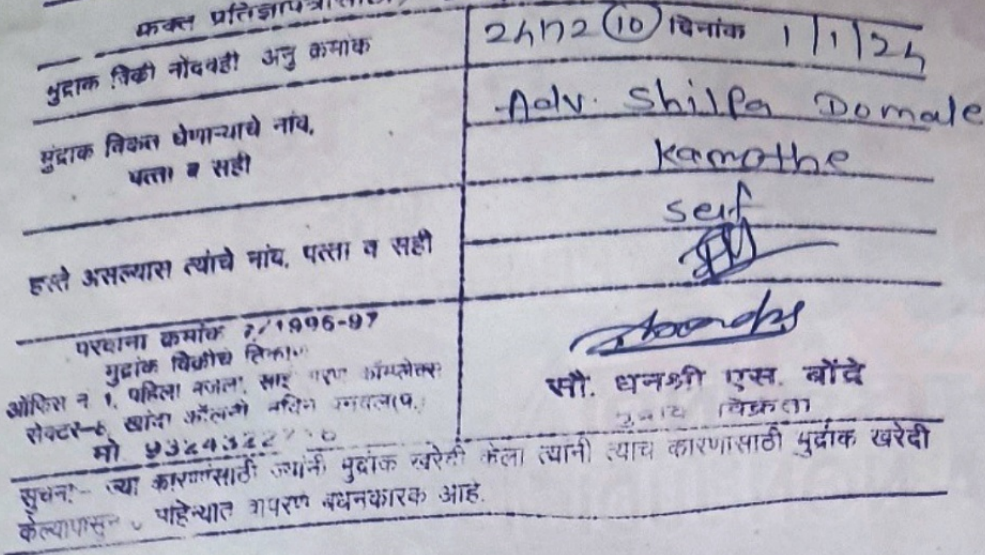 फक्त प्रतिज्ञापत्रासाठी
मुद्रांक विक्री नोंदवही अनु क्रमांक
दिनांक 1/1/24
मुद्रांक विकत घेणाऱ्याचे नांव,
पत्ता व सही
Adv. Shilpa Domale
Kamothe
हस्ते असल्यास त्यांचे नांव, पत्ता व सही
self
परवाना क्रमांक 7/1996-97
मुद्रांक विक्रीचे ठिकाण
ऑफिस नं 1, पहिला मजला, साई कॉम्प्लेक्स
सेक्टर-6, खांदा कॉलनी
मो. 9324322
सौ. धनश्री एस. बोंद्रे
मुद्रांक विक्रेता
सुचना- ज्या कारणांसाठी ज्यांनी मुद्रांक खरेदी केला त्यांनी त्याच कारणासाठी मुद्रांक खरेदी
केल्यापासून महिन्यात वापरणे बंधनकारक आहे.